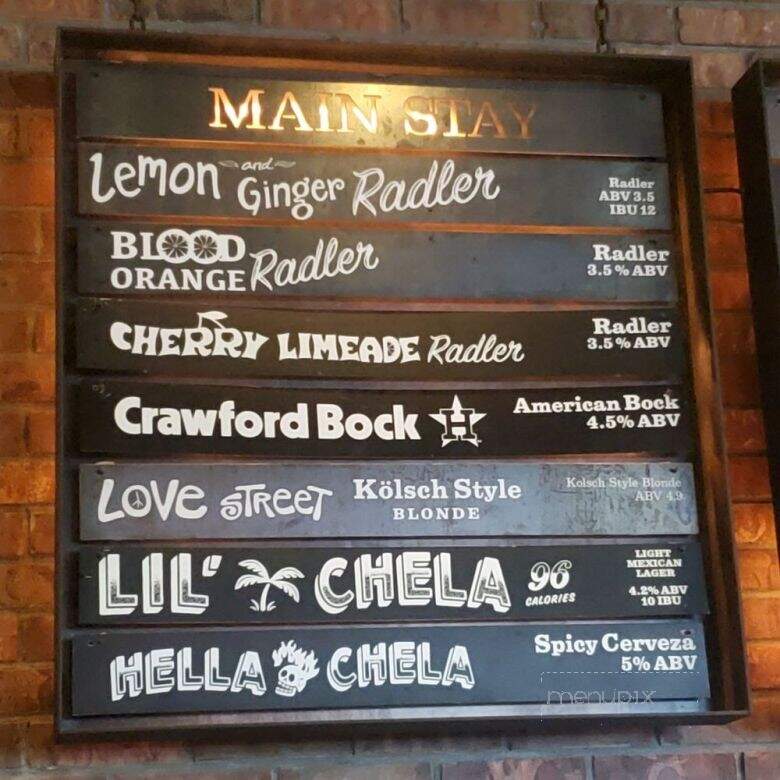 MAIN STAY
Lemon and Ginger Radler
Radler
ABV 3.5
IBU 12
BLOOD
ORANGE Radler
Radler
3.5% ABV
CHERRY LIMEADE Radler
Radler
3.5% ABV
Crawford Bock H
American Bock
4.5% ABV
LOVE STREET Kölsch Style
BLONDE
Kolsch Style Blonde
ABV 4.9
LIL' CHELA 96
CALORIES
LIGHT
MEXICAN
LAGER
4.2% ABV
10 IBU
HELLA CHELA
Spicy Cerveza
5% ABV
menupix